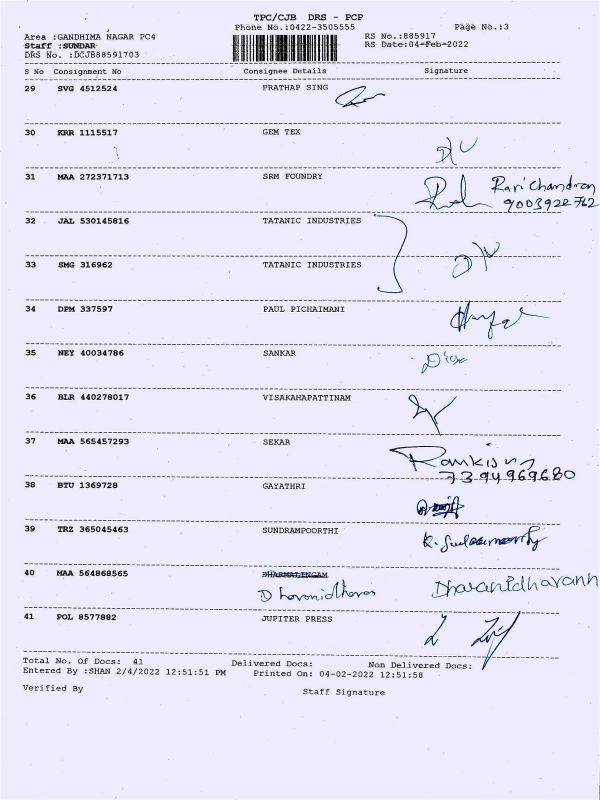 TPC/CJB DRS - PCP
Phone No.:0422-3505555
Page No.:3
Area :GANDHIMA NAGAR PC4
RS No.:885917
Staff :SUNDAR
RS Date:04-Feb-2022
DRS No. :DCJB88591703
S No Consignment No Consignee Details Signature
29 SVG 4512524 PRATHAP SING
30 KRR 1115517 GEM TEX
31 MAA 272371713 SRM FOUNDRY
Ravichandran
9003922762
32 JAL 530145816 TATANIC INDUSTRIES
33 SMG 316962 TATANIC INDUSTRIES
34 DPM 337597 PAUL PICHAIMANI
35 NEY 40034786 SANKAR
36 BLR 440278017 VISAKAHAPATTINAM
37 MAA 565457293 SEKAR
Ramkisun
7394969680
38 BTU 1369728 GAYATHRI
39 TRZ 365045463 SUNDRAMPOORTHI
40 MAA 564868565 DHARMALINGAM
Dharanidharan Dharanidharanh
41 POL 8577882 JUPITER PRESS
Total No. Of Docs: 41 Delivered Docs: Non Delivered Docs:
Entered By :SHAN 2/4/2022 12:51:51 PM Printed On: 04-02-2022 12:51:58
Verified By Staff Signature